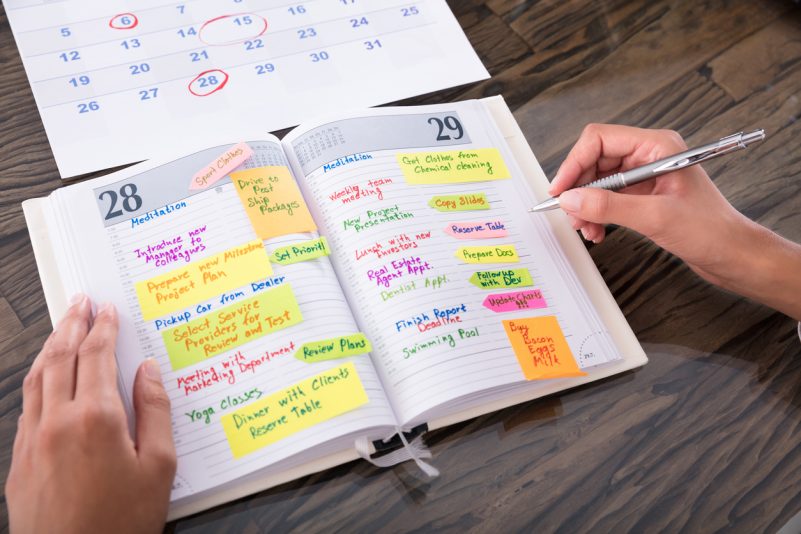 5 6 7 8
12 13 14 15 16 17 18
19 20 21 22 23 24 25
26 27 28 29 30 31
28
Sport Clothes
Meditation
Drive to
Post
Ship
Packages
Introduce new
Manager to
colleagues
Set Prioriti
Prepare new Milestone
Project Plan
Pickup Car from Dealer
Select Service
Providers for
Review and Test
Review Plans
Meeting with
Marketing Department
Yoga Classes
Dinner with Clients
Reserve Table
29
Meditation
Get Clothes from
Chemical cleaning
Weekly team
meeting
Copy Slides
New Project
Presentation
Reserve Table
Lunch with new
Investors
Prepare Docs
Real Estate
Agent Appt.
Follow up
with Dev
Dentist Appt.
Update Charts
Finish Report
Deadline
Swimming Pool
Buy
Bacon
Eggs
Milk